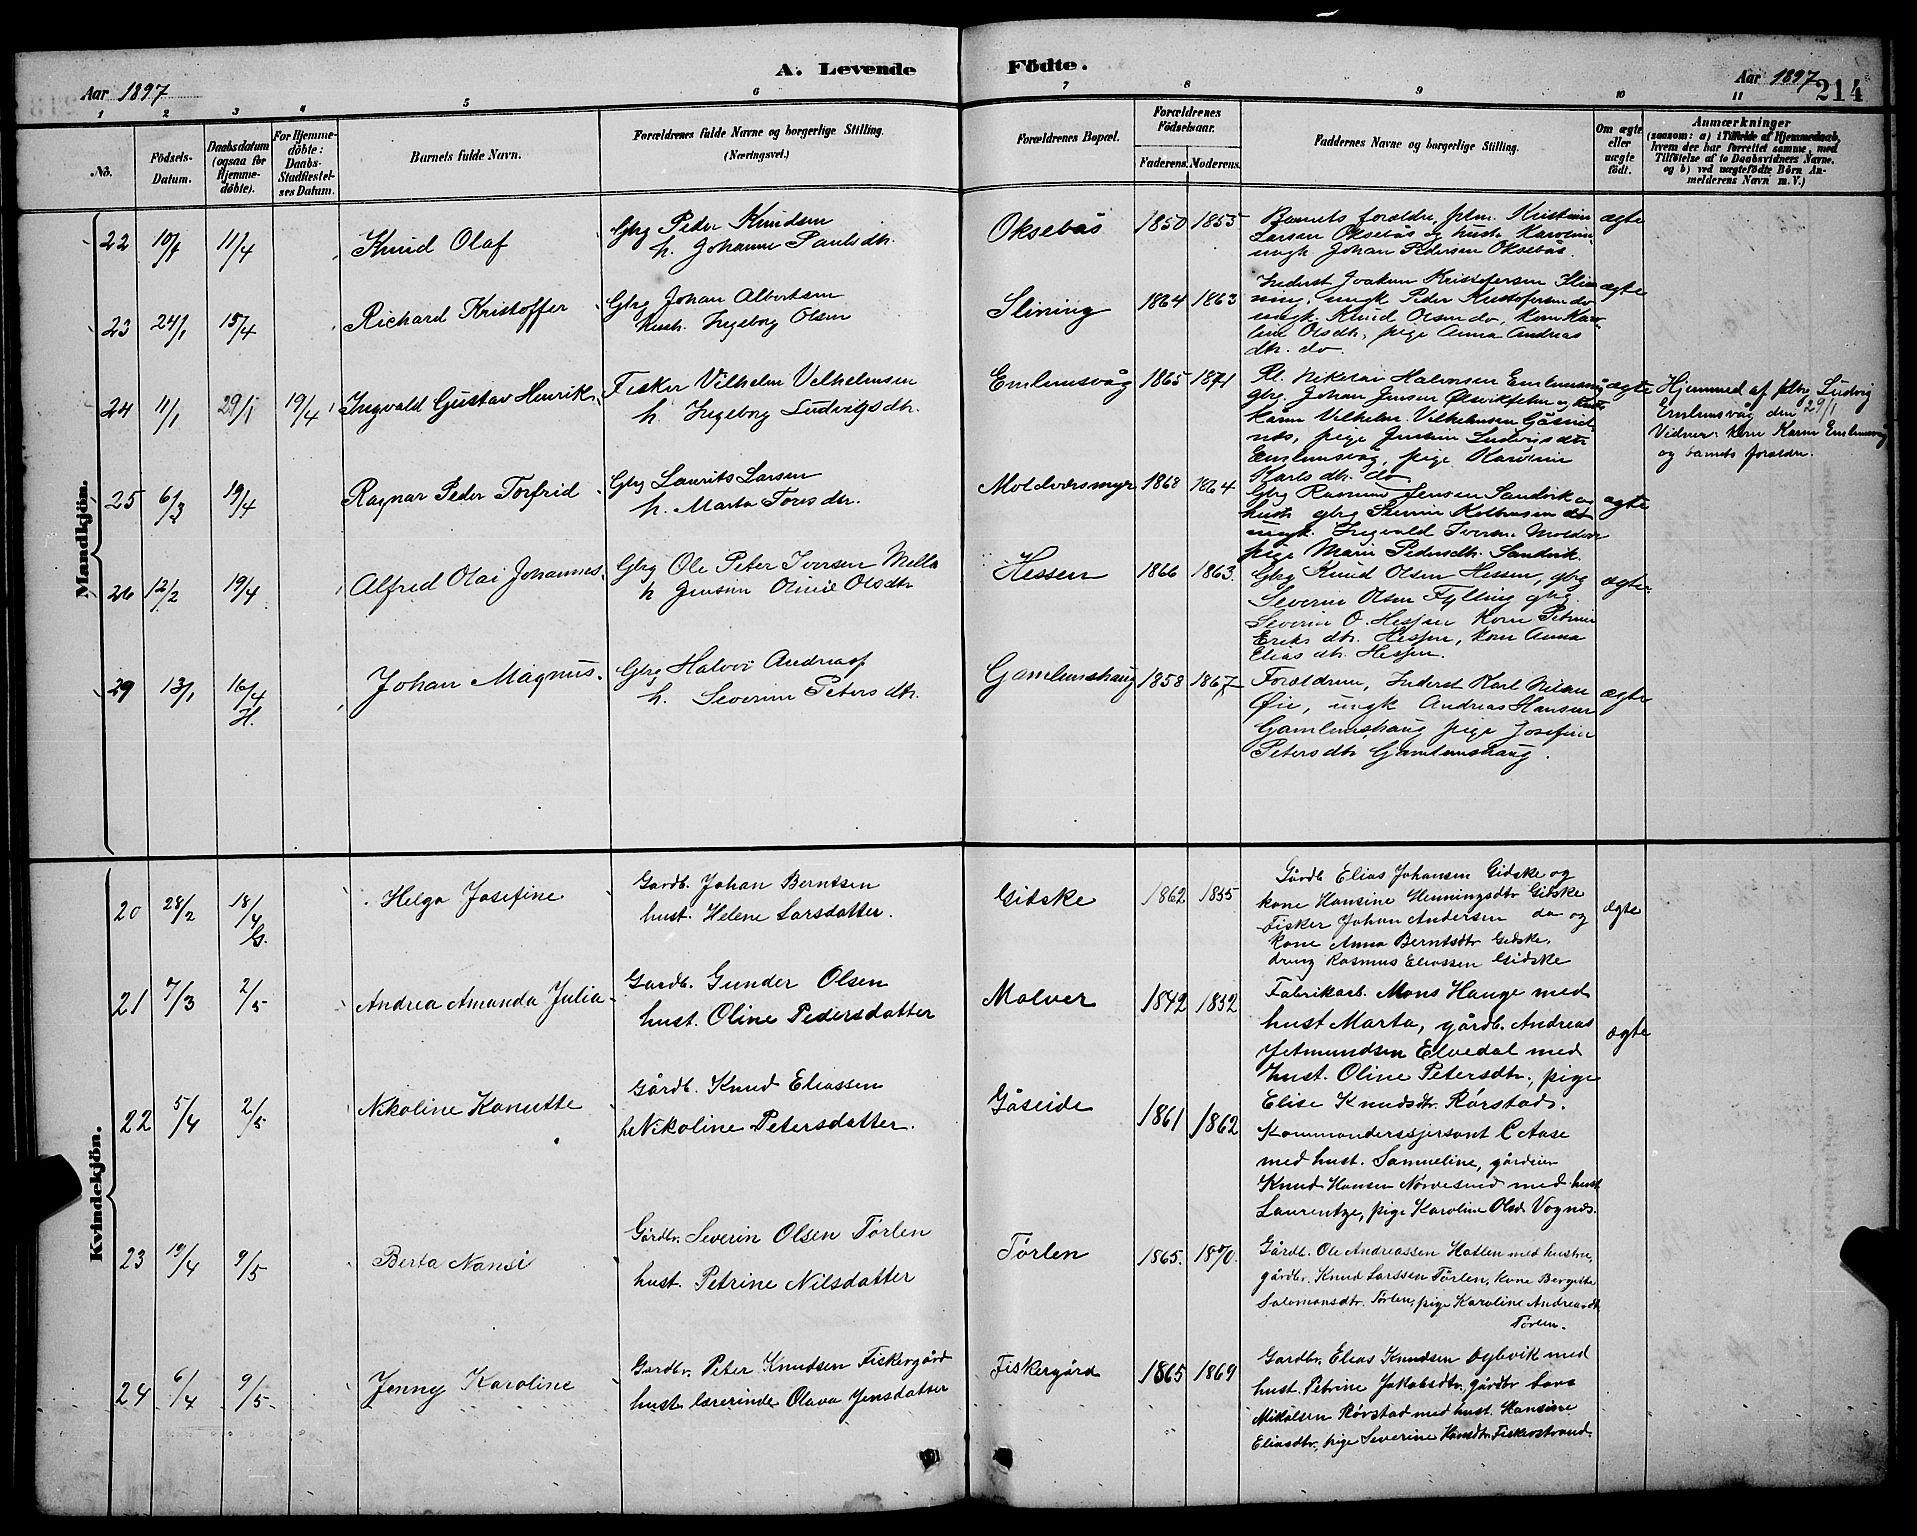 A. Levende Födte.
Aar 1897
Aar 1897
214
1 2 3 4 5 6 7 8 9 10 11
No.
Födsels-Datum.
Daabsdatum (ogsaa for Hjemme-döbte).
For Hjemme-döbte: Daabs-Stadfæstel-ses Datum.
Barnets fulde Navn.
Forældrenes fulde Navne og borgerlige Stilling. (Næringsvei.)
Forældrenes Bopæl.
Forældrenes Födselsaar.
Faderens. Moderens.
Faddernes Navne og borgerlige Stilling.
Om ægte eller uægte födt.
Anmærkninger
(saasom: a) i Tilfælde af Hjemmedaab,
hvem der har forrettet samme, med
Tilföielse af to Daabsvidners Navne.
og b) ved uægtefödte Börn An-
melderens Navn m. V.)
Mandkjön.
22 11/4 Knud Olaf
Gbrg Peder Knudsen
h. Johanne Paulsdtr.
Oksebås 1850 1855
Barnets forældre, Kristian
Larsen Oksebås og hust. Karoline
ungk Johan Pedersen Oksebås.
ægte
23 24/1 15/4 Richard Kristoffer
Gbrg Johan Albertsen
hust. Ingeborg Olsen
Slining 1864 1863
Inderst Joakim Kristofersen Slin
ning, ungk Peder Kristofersen do
ungk. Knud Olsen do, kone Karo-
line Olsdtr, pige Anna Andreas
dtr. do.
ægte
24 11/1 29/1 19/4 Ingvald Gustav Henrik
Fisker Vilhelm Velhelmsen
h. Ingeborg Ludvigsdtr.
Emlemsvåg 1865 1871
Nikolai Halvorsen Emlemsvåg
gbrg. Johan Jensen
Vilhelm Vilhelmsen
pige Ludvigsdtr
Emlemsvåg, pige Karoline
Karlsdtr. do
ægte
Hjemmed af Ludvig
Emlemsvåg den 29/1
Vidner: kone Karen Emlemsvåg
og barnets forældre.
25 6/3 19/4 Ragnar Peder Torfrid
Gbrg Laurits Larsen
h. Marta Toresdtr.
Moldværsmyr 1868 1864
Gbrg Rasmus Jensen Sandvik og
hust. gbrg
ungk. Ingvald Iversen Moldvær
pige Marie Pedersdtr. Sandvik.
ægte
26 12/2 19/4 Alfred Olai Johannes
Gbrg Ole Peter Iversen Mella
h Jensine Oline Olsdtr
Hessen 1866 1863.
Gbrg Knud Olsen Hessen, gbrg
Severin Olsen Fylling gbrg
Severin O. Hessen kone Petrine
Eriksdtr. Hessen, kone Anna
Eliasdtr. Hessen.
ægte
29 13/1 16/4 H. Johan Magnus.
Gbrg Halvor Andreass
h. Severine Petersdtr.
Gamlemshaug 1858 1867
Forældrene, Inderst Karl Nilsen
Øie, ungk Andreas Hansen
Gamlemshaug pige Josefine
Petersdtr Gamlemshaug.
ægte
Kvindekjön.
20 28/2 18/4 G. Helga Josefine
Gardb. Johan Berntsen
hust. Helene Larsdatter.
Gidske 1862 1855
Gårdb Elias Johansen Gidske og
kone Hansine Henningsdtr Gidske
Fisker Johan Andersen do og
kone Anna Berntsdtr Gidske,
dreng Rasmus Eliassen Gidske
ægte
21 7/3 2/5 Andrea Amanda Julia
Gardb. Gunder Olsen
hust. Oline Pedersdatter
Molver 1842 1852
Fabrikarb. Mons Hauge med
hust Marta, gårdb. Andreas
Jetmundsen Elvedal med
hust. Oline Petersdtr, pige
Elise Knudsdtr. Rørstad.
ægte
22 5/4 2/5 Nikoline Kanutte
Gårdb. Knud Eliassen
h. Nikoline Petersdatter.
Gåseide 1861 1862
Kommandersersjant C Aase
med hust. Samueline, gårdeier
Knud Hansen Nørvesund med hust
Laurentze, pige Karoline Olsd. Vognæs.
23 19/4 9/5 Berta Nansi
Gårdbr. Severin Olsen Tørlen
hust. Petrine Nilsdatter
Tørlen 1865. 1870.
Gårdb. Ole Andreassen Hatlen med hustru,
gårdbr. Knud Larssen Tørlen, kone Bergitte
Salomonsdtr. Tørlen, pige Karoline Andreasdt
Tørlen.
24 6/4 9/5 Jenny Karoline
Gardbr. Peter Knutsen Fiskergård
hust lærerinde Olava Jensdatter
Fiskergård 1865 1869
Gardbr. Elias Knudsen med
hust. Petrine Jakobsdtr. gårdbr Lars
Mikalsen Rørstad med hust. Hansine
Eliasdtr, pige Severine Hansdtr Fiskerstrand.